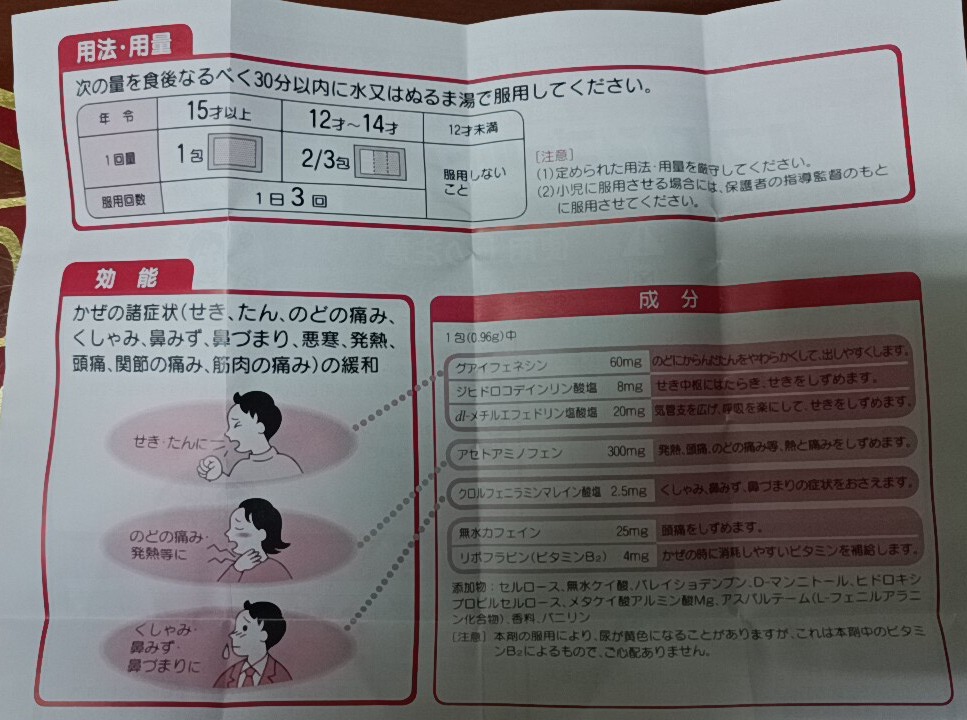 用法・用量
次の量を食後なるべく30分以内に水又はぬるま湯で服用してください。
年 令 15才以上 12才〜14才 12才未満
1回量 1包 2/3包 服用しない
こと
服用回数 1日3回
[注意]
(1)定められた用法・用量を厳守してください。
(2)小児に服用させる場合には、保護者の指導監督のもと
に服用させてください。
効 能
かぜの諸症状(せき、たん、のどの痛み、
くしゃみ、鼻みず、鼻づまり、悪寒、発熱、
頭痛、関節の痛み、筋肉の痛み)の緩和
せき・たんに
のどの痛み・
発熱等に
くしゃみ・
鼻みず・
鼻づまりに
成 分
1包(0.96g)中
グアイフェネシン 60mg のどにからんだたんをやわらかくして、出しやすくします。
ジヒドロコデインリン酸塩 8mg せき中枢にはたらき、せきをしずめます。
dl-メチルエフェドリン塩酸塩 20mg 気管支を広げ、呼吸を楽にして、せきをしずめます。
アセトアミノフェン 300mg 発熱、頭痛、のどの痛み等、熱と痛みをしずめます。
クロルフェニラミンマレイン酸塩 2.5mg くしゃみ、鼻みず、鼻づまりの症状をおさえます。
無水カフェイン 25mg 頭痛をしずめます。
リボフラビン(ビタミンB₂) 4mg かぜの時に消耗しやすいビタミンを補給します。
添加物:セルロース、無水ケイ酸、バレイショデンプン、D-マンニトール、ヒドロキシ
プロピルセルロース、メタケイ酸アルミン酸Mg、アスパルテーム(L-フェニルアラニ
ン化合物)、香料、バニリン
[注意] 本剤の服用により、尿が黄色になることがありますが、これは本剤中のビタミ
ンB₂によるもので、ご心配ありません。